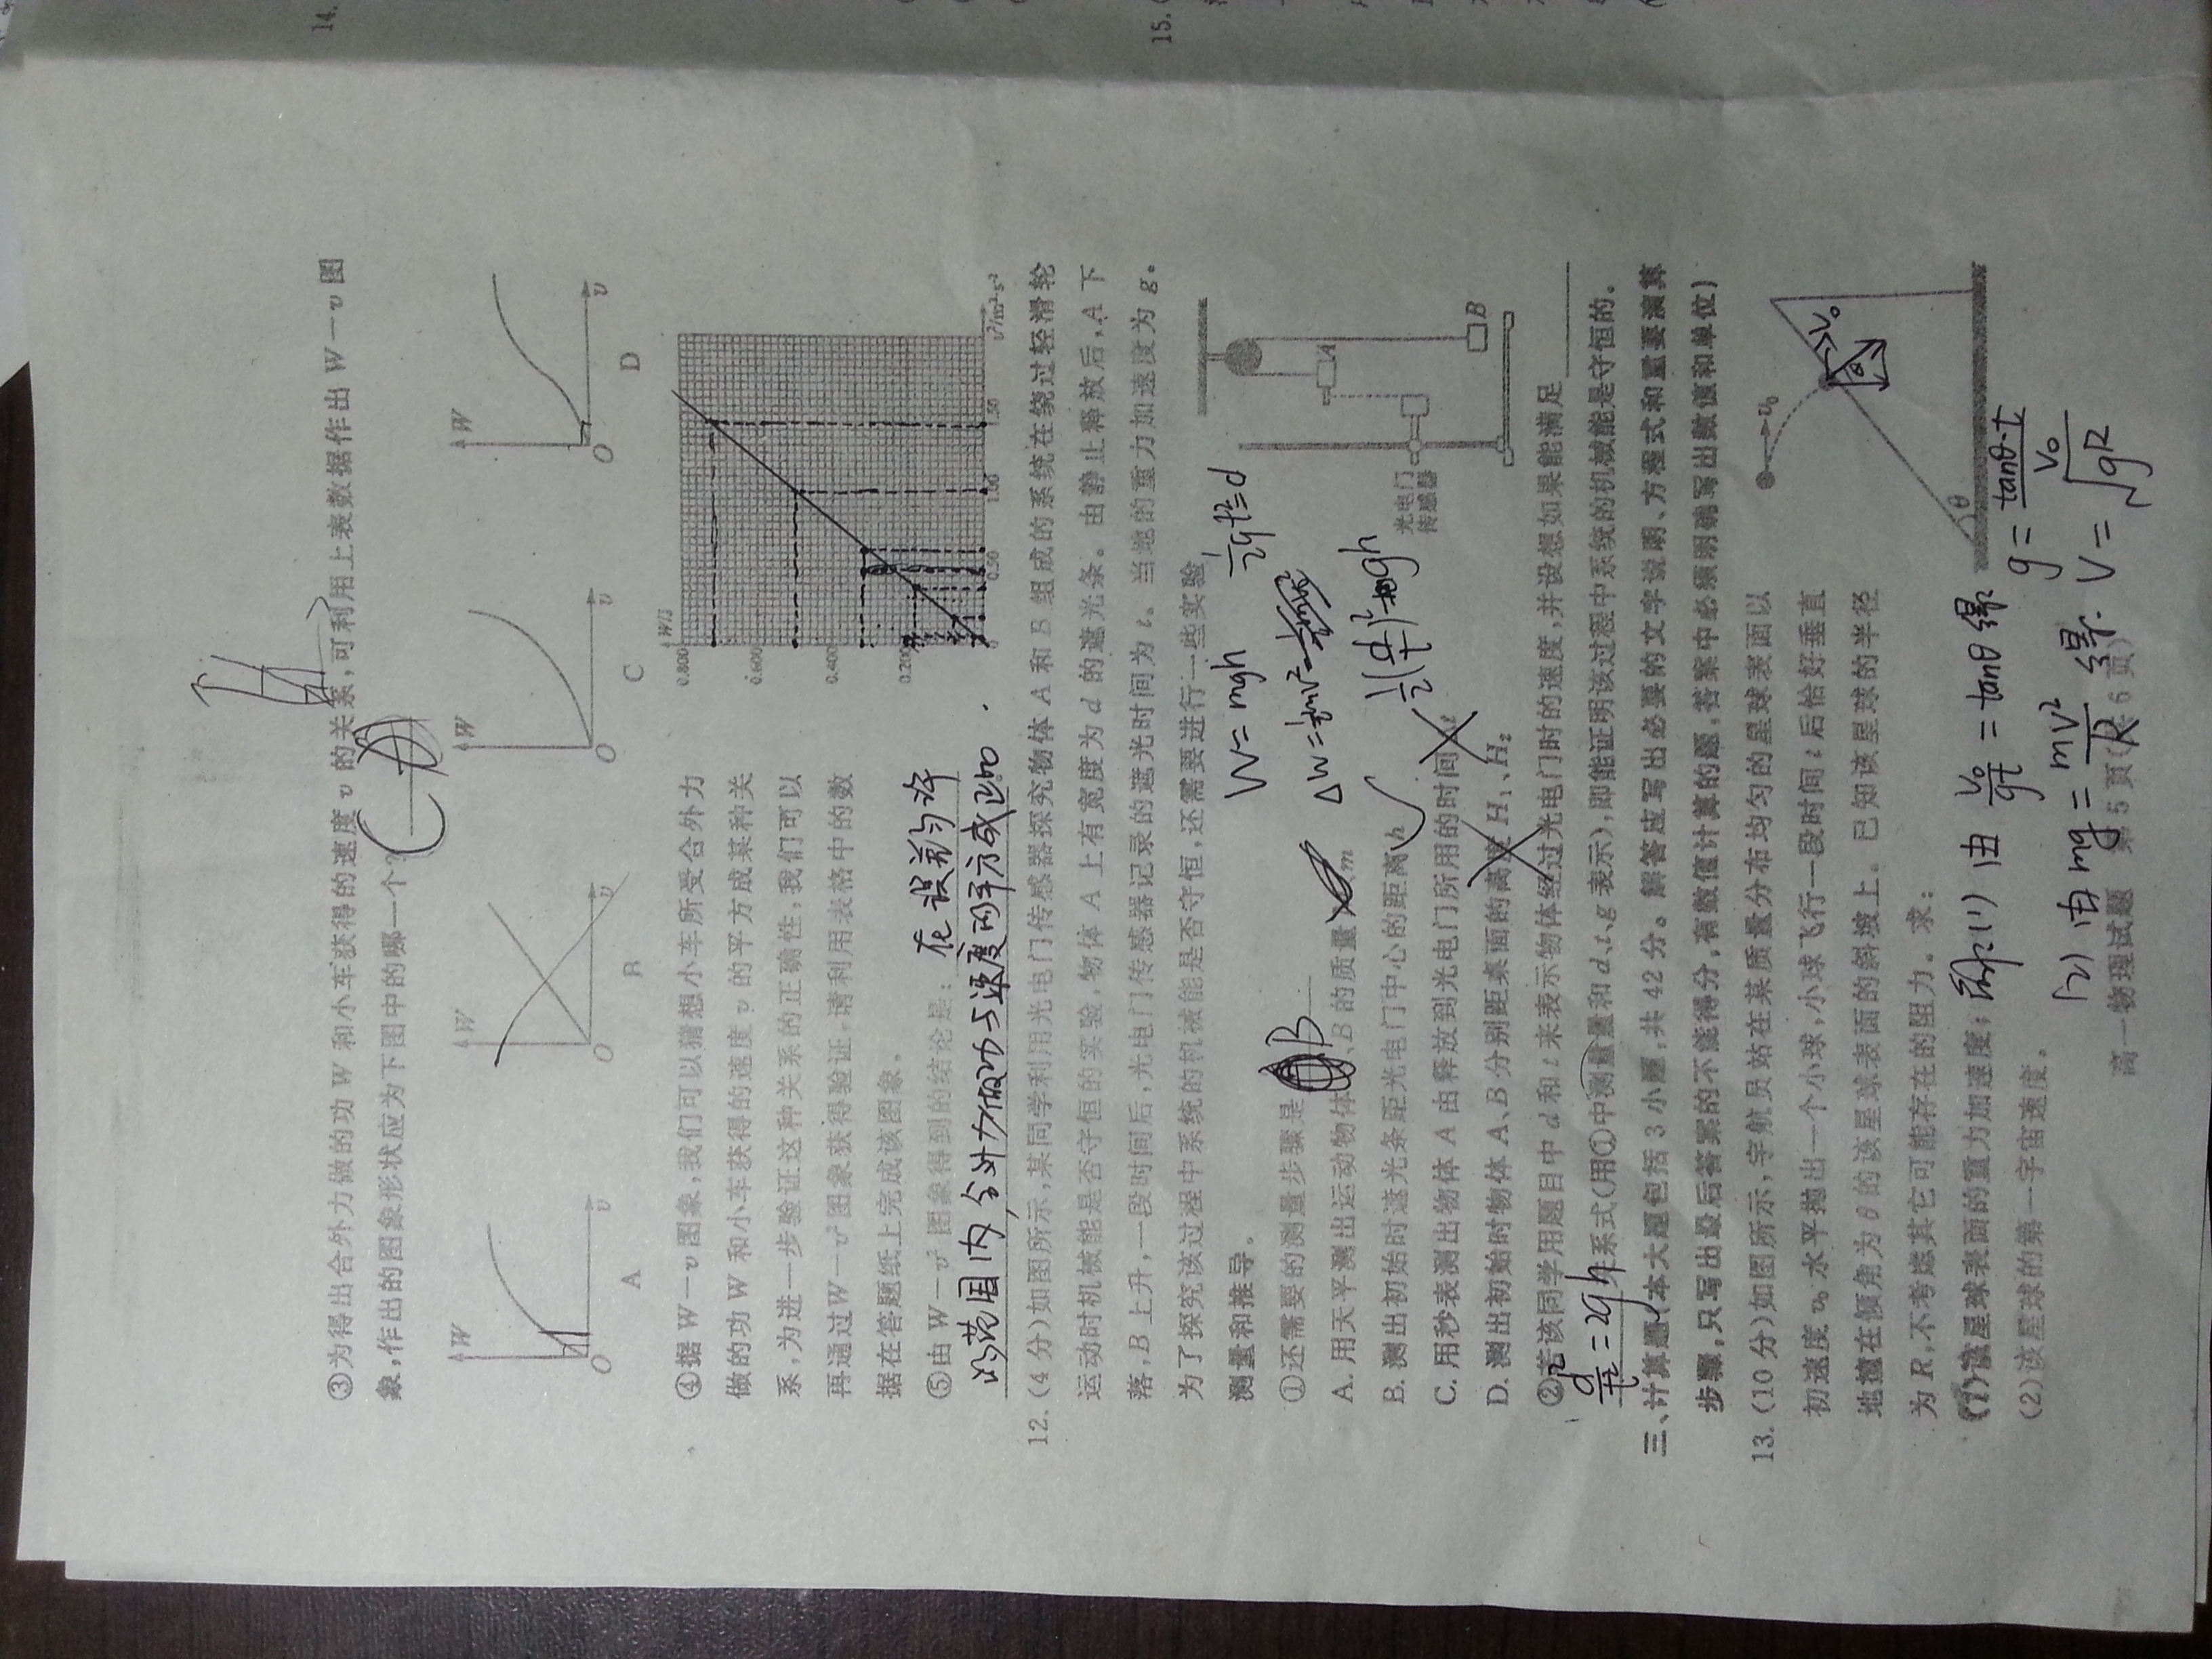 ③为得出合外力做的功 W 和小车获得的速度 v 的关系,可利用上表数据作出 W－v 图
象,作出的图象形状应为下图中的哪一个?
W
W
W
W
O
v
O
v
O
v
O
v
A
B
C
D
④据 W－v 图象,我们可以猜想小车所受合外力
做的功 W 和小车获得的速度 v 的平方成某种关
系,为进一步验证这种关系的正确性,我们可以
再通过W－v²图象获得验证,请利用表格中的数
据在答题纸上完成该图象。
W/J
0.800
0.600
0.400
0.200
0
0.50
1.00
1.50
v²/m²·s⁻²
⑤由 W－v² 图象得到的结论是: 在误差允许
的范围内,合外力做功与速度的平方成正比 .
12.(4 分)如图所示,某同学利用光电门传感器探究物体 A 和 B 组成的系统在绕过轻滑轮
运动时机械能是否守恒的实验,物体 A 上有宽度为 d 的遮光条。由静止释放后,A 下
落,B 上升,一段时间后,光电门传感器记录的遮光时间为 t。当地的重力加速度为 g。
为了探究该过程中系统的机械能是否守恒,还需要进行一些实验
测量和推导。
W = mgh
½gt²=d
①还需要的测量步骤是 B
A. 用天平测出运动物体、B 的质量、m
ΔW=½mv²
B. 测出初始时遮光条距光电门中心的距离 h
½(d/t)²=gh
C. 用秒表测出物体 A 由释放到光电门所用的时间 Δt
D. 测出初始时物体 A、B 分别距桌面的高度 H₁、H₂
光电门
传感器
A
B
②若该同学用题目中 d 和 t 来表示物体经过光电门时的速度,并设想如果能满足
d²/t²=2gh 关系式(用①中测量量和 d、t、g 表示),即能证明该过程中系统的机械能是守恒的。
三、计算题(本大题包括 3 小题,共 42 分。解答应写出必要的文字说明、方程式和重要演算
步骤,只写出最后答案的不能得分,有数值计算的题,答案中必须明确写出数值和单位)
13.(10 分)如图所示,宇航员站在某质量分布均匀的星球表面以
初速度 v₀ 水平抛出一个小球,小球飞行一段时间 t 后恰好垂直
地撞在倾角为 θ 的该星球表面的斜坡上。已知该星球的半径
为 R,不考虑其它可能存在的阻力。求:
v₀
V₀
θ
θ
(1)该星球表面的重力加速度;
(1) 由 V₀/gt = tanθ 得:
g = tanθ·t/V₀
(2)该星球的第一宇宙速度。
(2) 由 mg = mV²/R 得: V = √gR
高一物理试题 第 5 页(共 6 页)
14.
15.